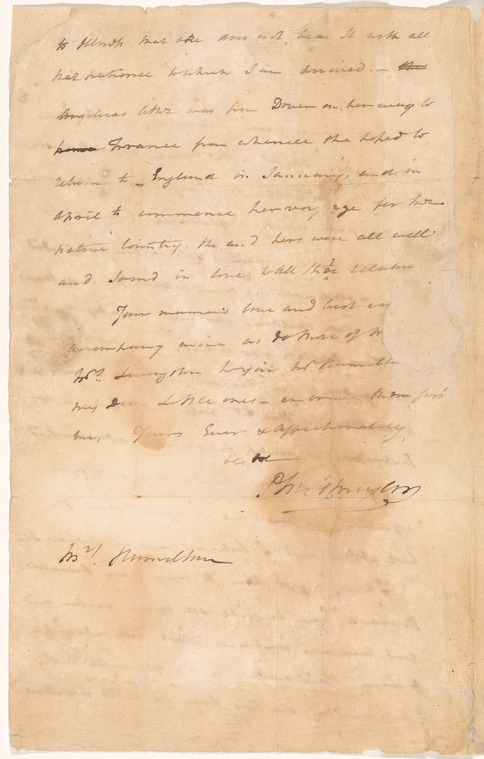 to that she does not bear It with all
that patience to which I am . –
Angelicas letter was from Dover on her way to
France from whence she hoped to
return to England in January, and in
April to commence her voyage for her
native Country, she and hers were all well
and Joined in love to all their relatives
Your mamma's love and best
accompany mine as do those of
Mrs. Livingston to you Mr Hamilton
my Dear Little ones – embrace them for
me, Yours Ever & Affectionately
Ph: Schuyler
Mrs. Hamilton